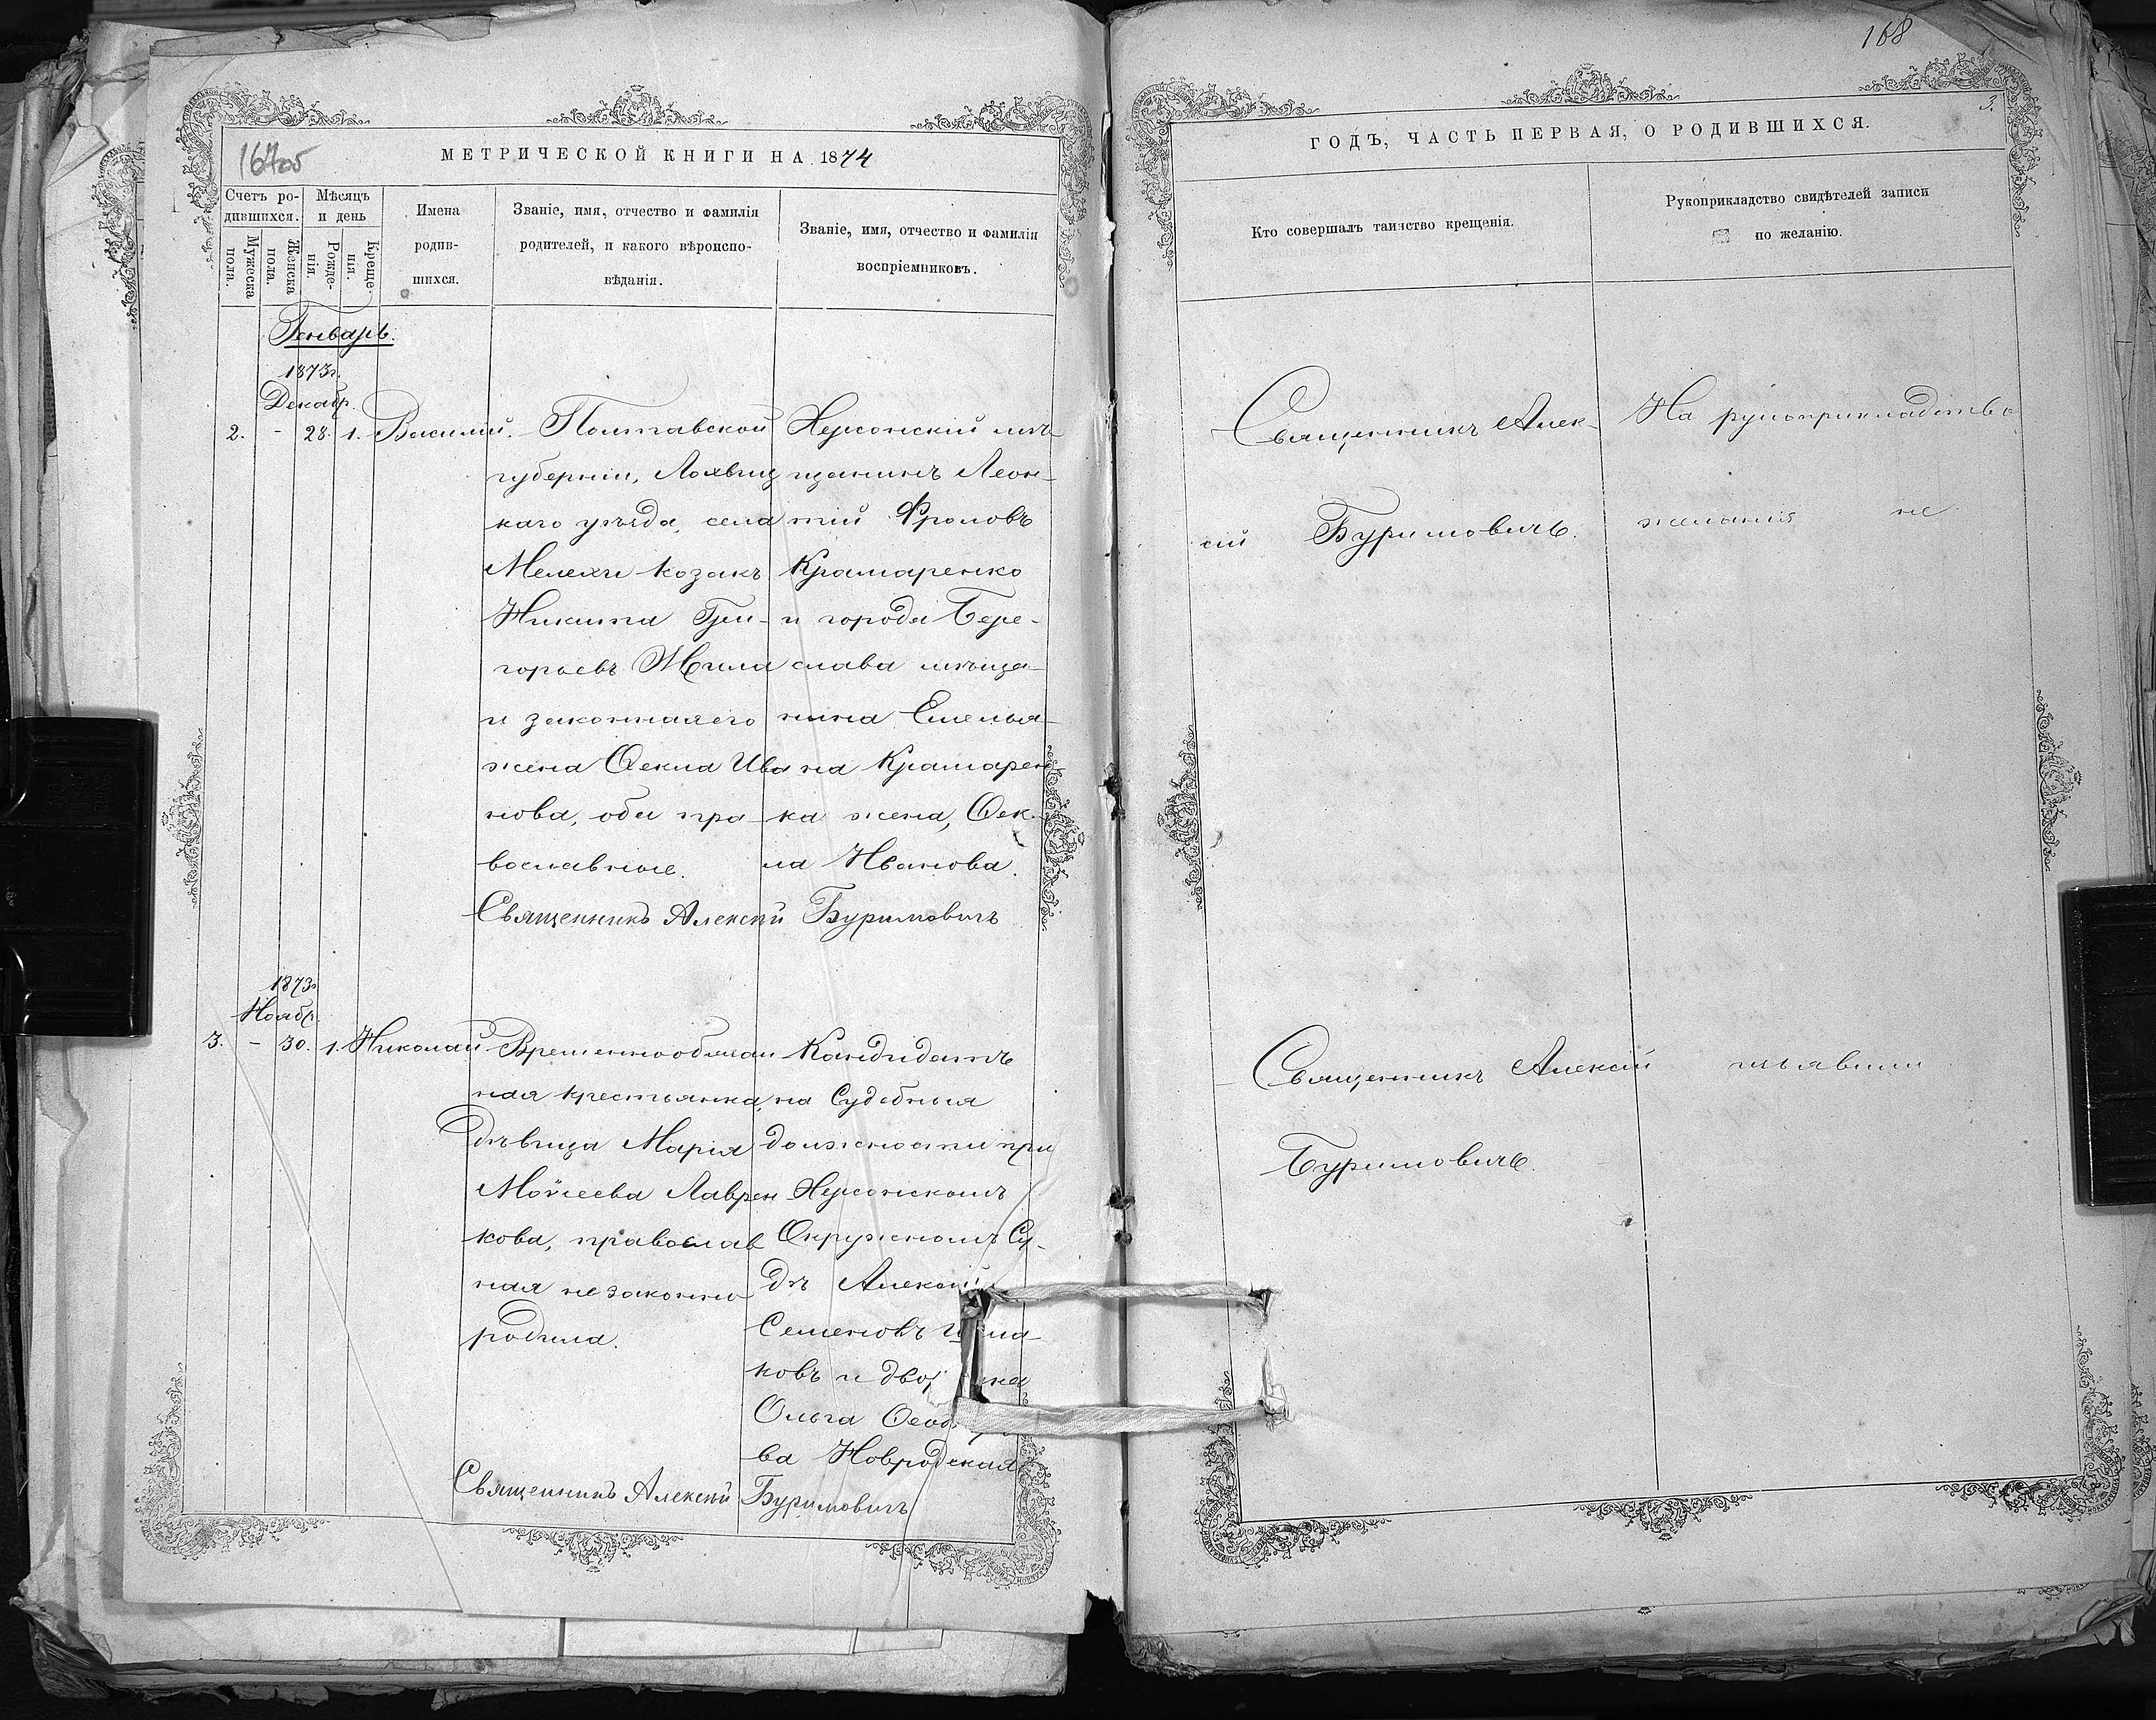 168
3.
167об
МЕТРИЧЕСКОЙ КНИГИ НА 1874
Счетъ ро-
дившихся.
Мужеска
пола.
Женска
пола.
Мѣсяцъ
и день
Рожде-
нія.
Креще-
нія.
Имена
родив-
шихся.
Званіе, имя, отчество и фамилія
родителей, и какого вѣроиспо-
вѣданія.
Званіе, имя, отчество и фамилія
воспріемниковъ.
Генварь.
1873г.
Декабр.
2. - 28. 1. Василий.
Полтавской
губерніи, Лохвиц
каго уѣзда, села
Мелехи козакъ
Никита Гри-
горьевъ Жила
и законная его
жена Ѳекла Ива
нова, оба пра-
вославные.
Херсонскій мѣ-
щанинъ Леон-
тій Фроловъ
Крамаренко
и города Бере-
слава мѣща-
нина Емелья-
на Крамарен-
ка жена, Ѳек-
ла Иванова.
Священникъ Алексѣй Буримовичъ
1873г.
Ноябр.
3. - 30. 1. Николай
Временнообязан
ная крестьянка,
дѣвица Марія
Моисеева Лаврен
кова, православ
ная незаконно
родила.
Кандидатъ
на Судебныя
должности при
Херсонскомъ
Окружномъ Су-
дѣ Алексѣй
Семеновъ
ковъ и
Ольга
ва Новродская
Священникъ Алексѣй Буримовичъ
ГОДЪ, ЧАСТЬ ПЕРВАЯ, О РОДИВШИХСЯ.
Кто совершалъ таинство крещенія.
Рукоприкладство свидѣтелей записи
по желанію.
Священникъ Алек-
сій Буримовичъ.
На рукоприкладство
желанія не
Священникъ Алексій
Буримовичъ.
изъявили